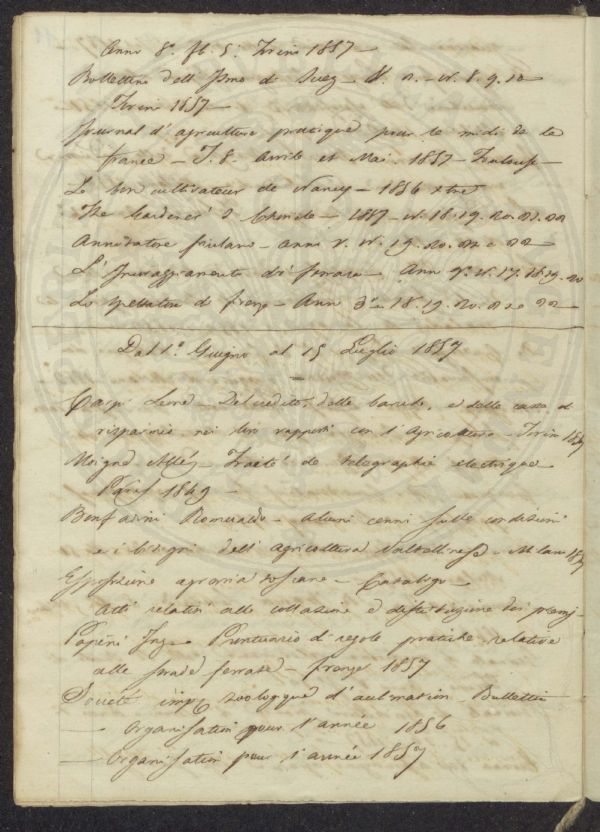 Anno 8º. ft. 5. Torino 1857 —
Bollettino dell' Ismo di Suez — N. 8. 9. 10
Torino 1857 —
Journal d'agriculture pratique pour le midi de la
France — T. 8. Avril et Mai. 1857 — Toulouse —
Le bon cultivateur de Nancy — 1856
The Gardener's Chronicle — 1857 — N. 18. 19. 20. 21. 22
Annotatore friulano — Anno V. N. 19. 20. 21 e 22 —
L'Incoraggiamento di ferrara — Ann N. 17. 18. 19. 20
Lo Spettatore di firenze — Ann 3º — 18. 19. 20. 21 e 22 —
Dal 1º. Giugno al 15 Luglio 1857
Carpi Leone — Del credito, delle banche, e delle casse di
risparmio, nei loro rapporti con l'Agricoltura — Torino 1857
Moigno Abbé — Traité de telegraphie electrique
Paris 1849 —
Bonfadini Romualdo — Alcuni cenni sulle condizioni
e i bisogni dell' agricoltura Valtellinese — Milano 1857
Esposizione agraria toscana — Catalogo —
Atti relativi alla collazione e distribuzione dei premj —
Papini Ing. — Prontuario di regole pratiche relative
alle strade ferrate — firenze 1857
Société imp. zoologique d'aclimation — Bulletin
— Organisation pour l'année 1856
— Organisation pour l'année 1857